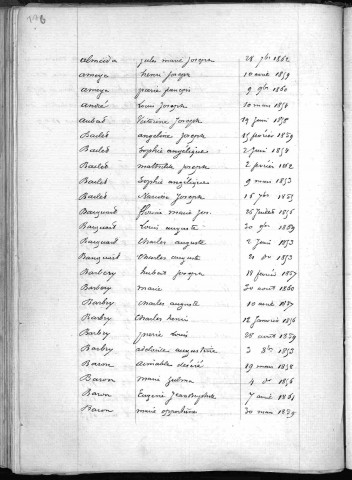 196
Almeida jules marie joseph 28 7bre 1862
ameye henri joseph 10 août 1859
ameye pierre françois 9 9bre 1860
andré Louis joseph 10 mars 1854
aubert Victorine joseph 19 juin 1855
Baclet angeline joseph 25 février 1859
Baclet Sophie angélique 2 juin 1854
Baclet mathilde joseph 2 février 1862
Baclet Sophie angélique 9 mars 1853
Baclet Narcisse joseph 16 1859
Bacquart Marie 26 juillet 1856
Bacquart Louis auguste 30 9bre 1859
Bacquart Charles auguste 2 juin 1853
Bacquart Charles auguste 21 do 1853
Barbery hubert joseph 18 février 1857
Barbry marie 30 août 1860
Barbry Charles auguste 10 août 1857
Barbry Charles henri 12 janvier 1856
Barbry pierre Louis 28 août 1859
Barbry adelaïde augustine 3 8bre 1853
Baron aimable désiré 19 mars 1858
Baron marie 4 do 1856
Baron Eugène Jean Baptiste 7 août 1861
Baron marie 30 mars 1859